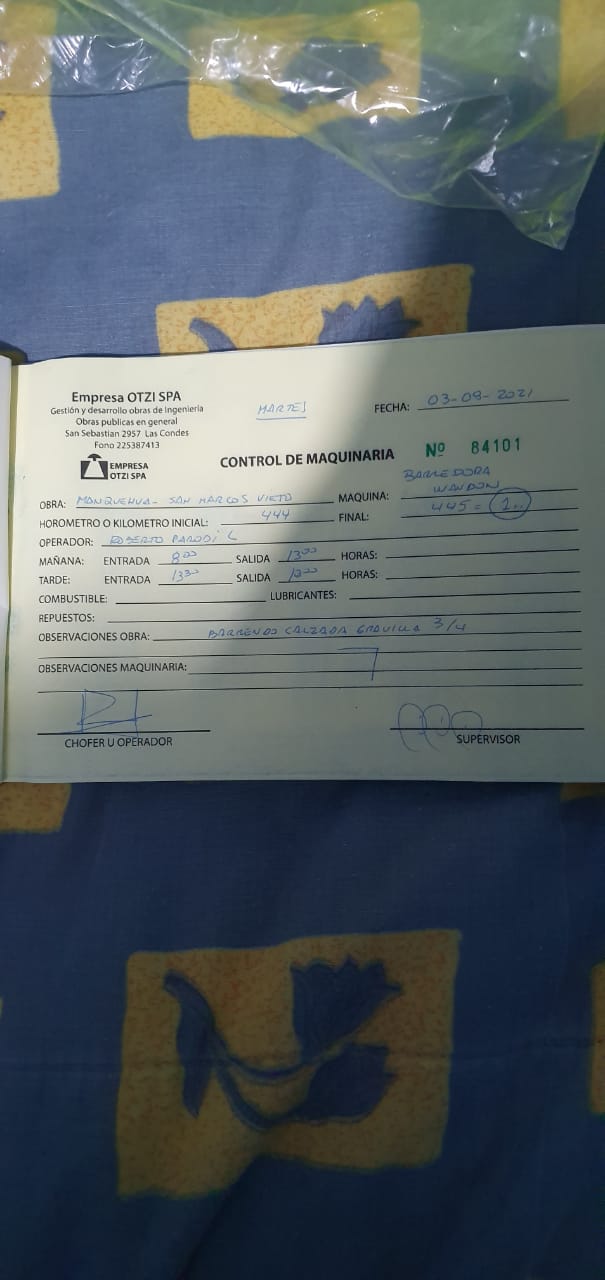 Empresa OTZI SPA
Gestión y desarrollo obras de Ingenieria
Obras publicas en general
San Sebastian 2957 Las Condes
Fono 225387413
EMPRESA
OTZI SPA
MARTES
FECHA: 03-08-2021
CONTROL DE MAQUINARIA
Nº 84101
OBRA: MANQUEHUA - SAN MARCOS VIETO
MAQUINA: BARREDORA
WALDON
HOROMETRO O KILOMETRO INICIAL: 444
FINAL: 445 = 1..
OPERADOR: ROBERTO PARODI C
MAÑANA: ENTRADA 8:00 SALIDA 13:00 HORAS:
TARDE: ENTRADA 13:30 SALIDA HORAS:
COMBUSTIBLE: LUBRICANTES:
REPUESTOS:
OBSERVACIONES OBRA: BARRENDO CALZADA GRAVILLA 3/4
OBSERVACIONES MAQUINARIA:
CHOFER U OPERADOR
SUPERVISOR